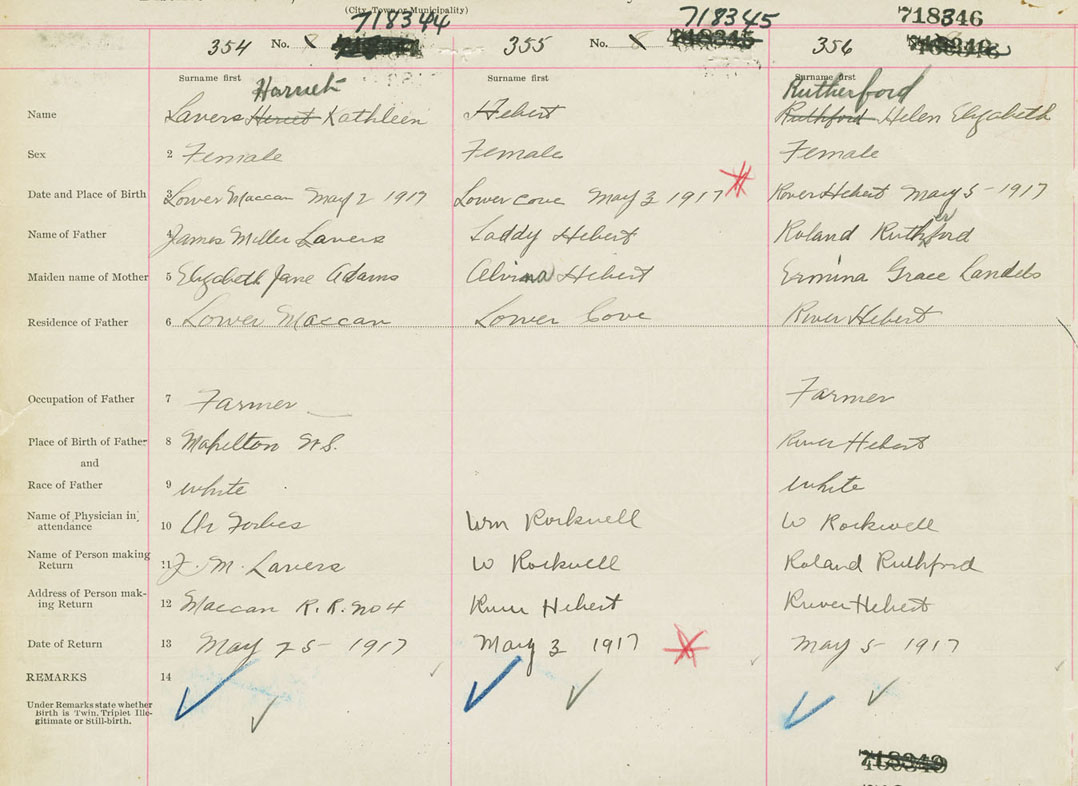 (City, Town or Municipality)
718344 718345 718346
354 No. 8 355 No. 8 356
Surname first Surname first Surname first
Harriet Rutherford
Name Lavers Kathleen Hebert Ruthford Helen Elizabeth
Sex 2 Female Female Female
Date and Place of Birth 3 Lower Maccan May 2 1917 Lower Cove May 3 1917 River Hebert May 5 - 1917
Name of Father 4 James Miller Lavers Laddy Hebert Roland Rutherford
Maiden name of Mother 5 Elizabeth Jane Adams Alvina Hebert Ermina Grace Landels
Residence of Father 6 Lower Maccan Lower Cove River Hebert
Occupation of Father 7 Farmer Farmer
Place of Birth of Father 8 Mapelton N.S. River Hebert
and
Race of Father 9 White White
Name of Physician in
attendance 10 Dr Forbes Wm Rockwell W Rockwell
Name of Person making
Return 11 J. M. Lavers W Rockwell Roland Ruthford
Address of Person mak-
ing Return 12 Maccan R. R. No 4 River Hebert River Hebert
Date of Return 13 May 25 - 1917 May 3 1917 May 5 - 1917
REMARKS 14
Under Remarks state whether
Birth is Twin, Triplet Ille-
gitimate or Still-birth.